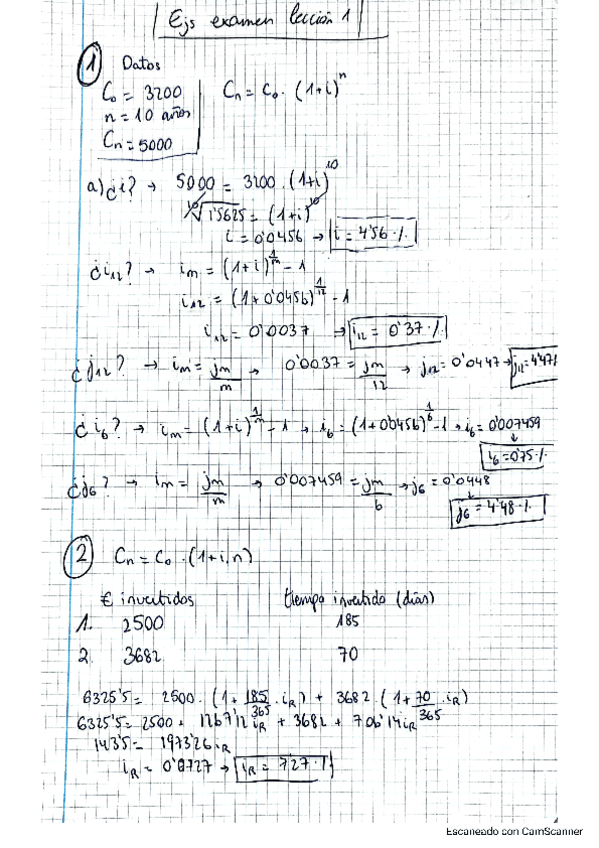 Ejs examen lección 1
1 Datos
C₀ = 3200
n = 10 años
Cn = 5000
Cn = C₀ · (1+i)^n
a) ¿i? → 5000 = 3200 · (1+i)^10
¹⁰√1'5625 = (1+i)^10
i = 0'0456 → i = 4'56 %
¿i₁₂? → im = (1+i)^(1/m) - 1
i₁₂ = (1+0'0456)^(1/12) - 1
i₁₂ = 0'0037 → i₁₂ = 0'37 %
¿j₁₂? → im = jm/m → 0'0037 = jm/12 → j₁₂ = 0'0447 → j₁₂ = 4'47%
¿i₆? → im = (1+i)^(1/m) - 1 → i₆ = (1+0'0456)^(1/6) - 1 → i₆ = 0'007459
i₆ = 0'75 %
¿j₆? → im = jm/m → 0'007459 = jm/6 → j₆ = 0'0448
j₆ = 4'48 %
2 Cn = C₀ · (1+i·n)
€ invertidos tiempo invertido (días)
1. 2500 185
2. 3682 70
6325'5 = 2500 · (1 + 185/365 · iR) + 3682 · (1 + 70/365 · iR)
6325'5 = 2500 + 1267'12 iR + 3682 + 706'14 iR
143'5 = 1973'26 iR
iR = 0'0727 → iR = 7'27 %
Escaneado con CamScanner